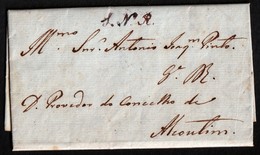 S. N. R.
Mmo Snr. Antonio Pinto
Gde
D. Provedor do Concelho de
Alcoutim.